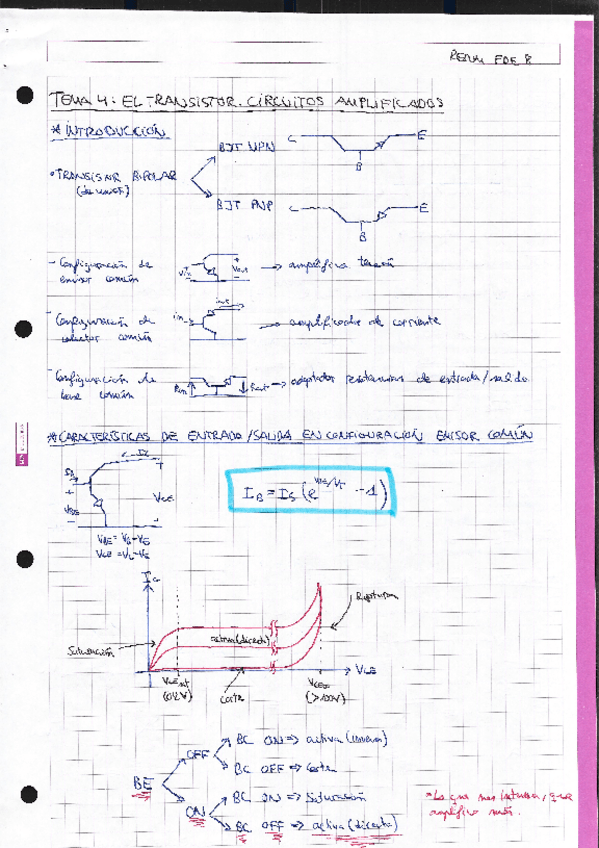 TEMA 4: EL TRANSISTOR. CIRCUITOS AMPLIFICADOS
* INTRODUCCIÓN
BJT NPN C E
B
• TRANSISTOR BIPOLAR
BJT PNP C E
B
- Configuración de emisor común
Vin Vout → amplifica tensión
- Configuración de colector común
iin iout → amplificador de corriente
- Configuración de base común
Rin Rout → adaptador resistencias de entrada/salida
* CARACTERÍSTICAS DE ENTRADA/SALIDA EN CONFIGURACIÓN EMISOR COMÚN
+ VCE
VBE
-
IB = IS (e^VBE/VT - 1)
VBE = VB - VE
VCE = VC - VE
IC
Ruptura
activa (directa)
Saturación
VCE
VCE sat
(0'2V)
Corte
(>100V)
BC ON ⇒ activa (inversa)
OFF
BC OFF ⇒ Corte
BE
BC ON ⇒ Saturación
ON
BC OFF ⇒ activa (directa)
* Lo que nos interesa, que
amplifica más.